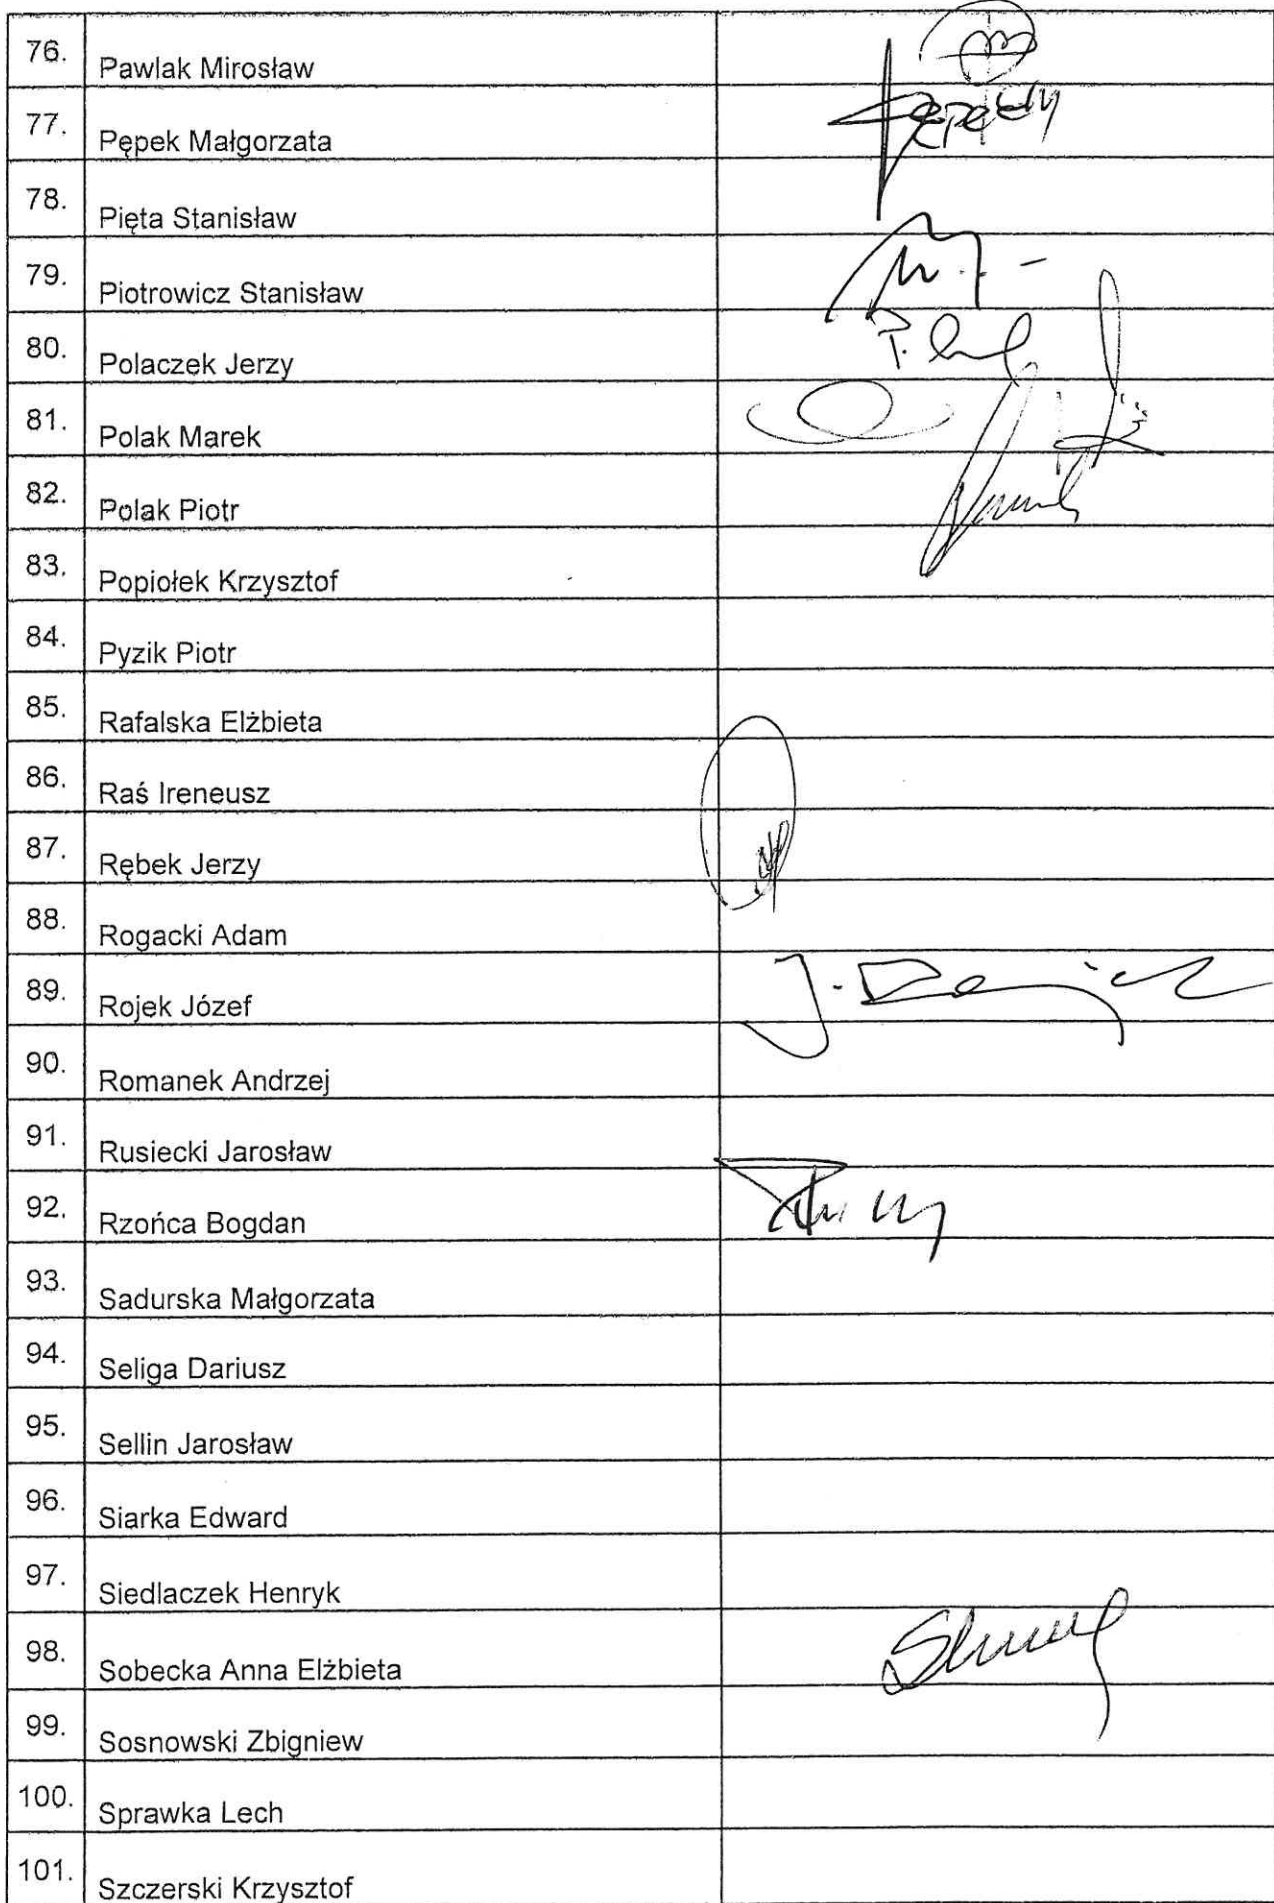 76. Pawlak Mirosław
77. Pępek Małgorzata
78. Pięta Stanisław
79. Piotrowicz Stanisław
80. Polaczek Jerzy
81. Polak Marek
82. Polak Piotr
83. Popiołek Krzysztof
84. Pyzik Piotr
85. Rafalska Elżbieta
86. Raś Ireneusz
87. Rębek Jerzy
88. Rogacki Adam
89. Rojek Józef
90. Romanek Andrzej
91. Rusiecki Jarosław
92. Rzońca Bogdan
93. Sadurska Małgorzata
94. Seliga Dariusz
95. Sellin Jarosław
96. Siarka Edward
97. Siedlaczek Henryk
98. Sobecka Anna Elżbieta
99. Sosnowski Zbigniew
100. Sprawka Lech
101. Szczerski Krzysztof